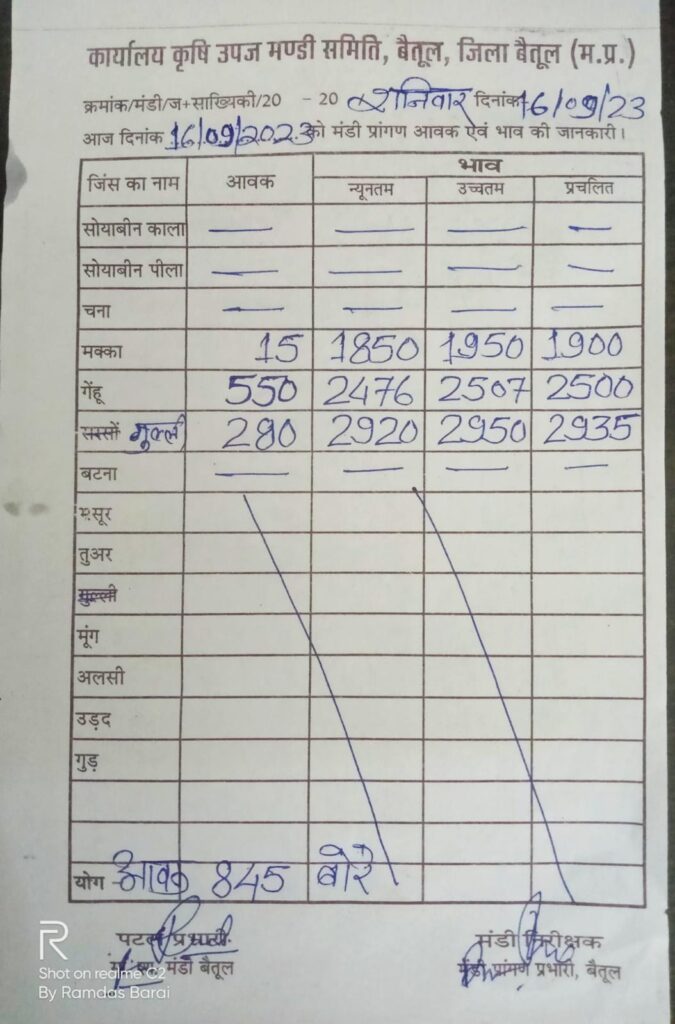 कार्यालय कृषि उपज मण्डी समिति, बैतूल, जिला बैतूल (म.प्र.)
क्रमांक/मंडी/ज+साख्यिकी/20 - 20 शनिवार दिनांक 16/09/23
आज दिनांक 16/09/2023 को मंडी प्रांगण आवक एवं भाव की जानकारी।
जिंस का नाम आवक भाव
न्यूनतम उच्चतम प्रचलित
सोयाबीन काला — — — —
सोयाबीन पीला — — — —
चना — — — —
मक्का 15 1850 1950 1900
गेंहू 550 2476 2507 2500
सरसों गुल्ली 280 2920 2950 2935
बटना — — — —
मसूर
तुअर
गुल्ली
मूंग
अलसी
उड़द
गुड़
योग - आवक 845 बोरे
पटल प्रभारी मंडी निरीक्षक
मंडी बैतूल मंडी प्रांगण प्रभारी, बैतूल
R
Shot on realme C2
By Ramdas Barai